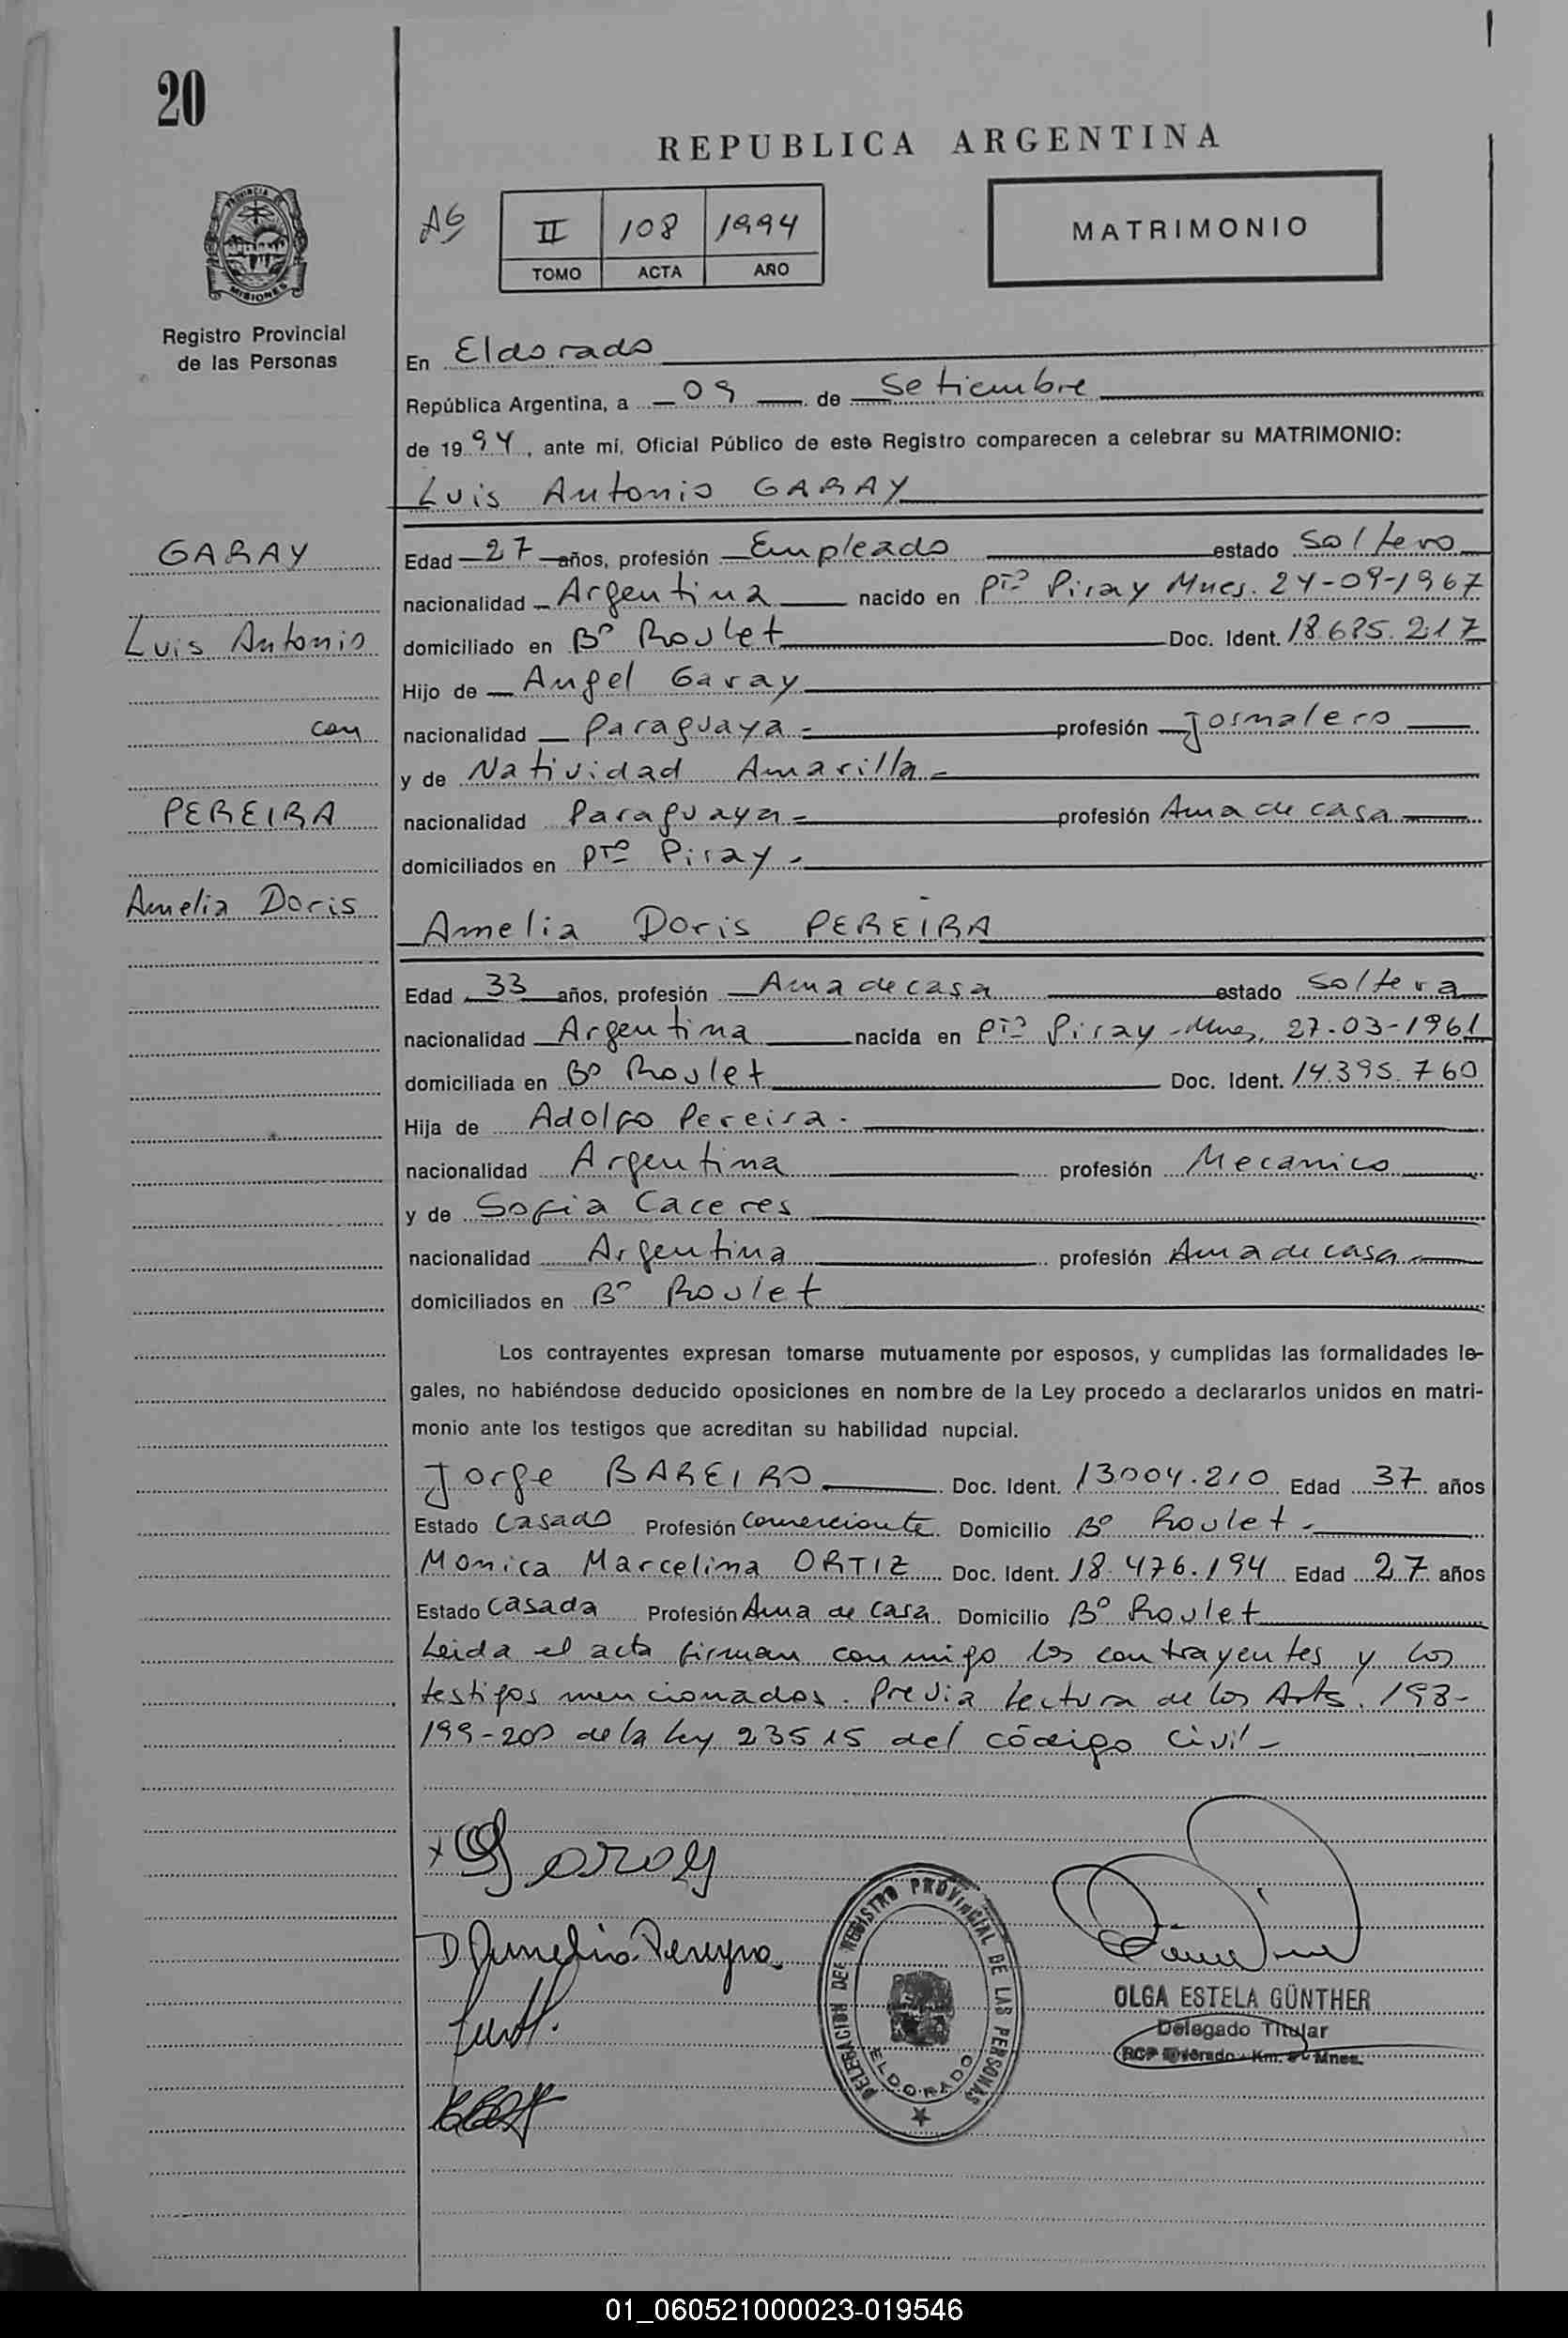 20
REPUBLICA ARGENTINA
PROVINCIA DE
MISIONES
Registro Provincial
de las Personas
AG
II 108 1994
TOMO ACTA AÑO
MATRIMONIO
En Eldorado
República Argentina, a 09 de Setiembre
de 1994, ante mí, Oficial Público de este Registro comparecen a celebrar su MATRIMONIO:
Luis Antonio GARAY
GARAY
Luis Antonio
con
PEREIRA
Amelia Doris
Edad 27 años, profesión Empleado estado Soltero
nacionalidad Argentina nacido en Pto Piray Mnes. 24-09-1967
domiciliado en Bº Roulet Doc. Ident. 18.685.217
Hijo de Angel Garay
nacionalidad Paraguaya profesión Jornalero
y de Natividad Amarilla
nacionalidad Paraguaya profesión Ama de casa
domiciliados en Pto Piray
Amelia Doris PEREIRA
Edad 33 años, profesión Ama de casa estado Soltera
nacionalidad Argentina nacida en Pto Piray Mnes. 27-03-1961
domiciliada en Bº Roulet Doc. Ident. 14.395.760
Hija de Adolfo Pereira
nacionalidad Argentina profesión Mecanico
y de Sofia Caceres
nacionalidad Argentina profesión Ama de casa
domiciliados en Bº Roulet
Los contrayentes expresan tomarse mutuamente por esposos, y cumplidas las formalidades le-
gales, no habiéndose deducido oposiciones en nombre de la Ley procedo a declararlos unidos en matri-
monio ante los testigos que acreditan su habilidad nupcial.
Jorge BAREIRO Doc. Ident. 13004.210 Edad 37 años
Estado Casado Profesión Comerciante Domicilio Bº Roulet
Monica Marcelina ORTIZ Doc. Ident. 18.476.194 Edad 27 años
Estado Casada Profesión Ama de casa Domicilio Bº Roulet
Leida el acta firman conmigo los contrayentes y los
testigos mencionados. Previa lectura de los Arts. 198-
199-200 de la ley 23515 del código civil-
Garay
D Amelia Pereyra
DELEGACION DEL REGISTRO PROVINCIAL DE LAS PERSONAS
ELDORADO
OLGA ESTELA GÜNTHER
Delegado Titular
RCP Eldorado - Km. Mnes.
01_060521000023-019546